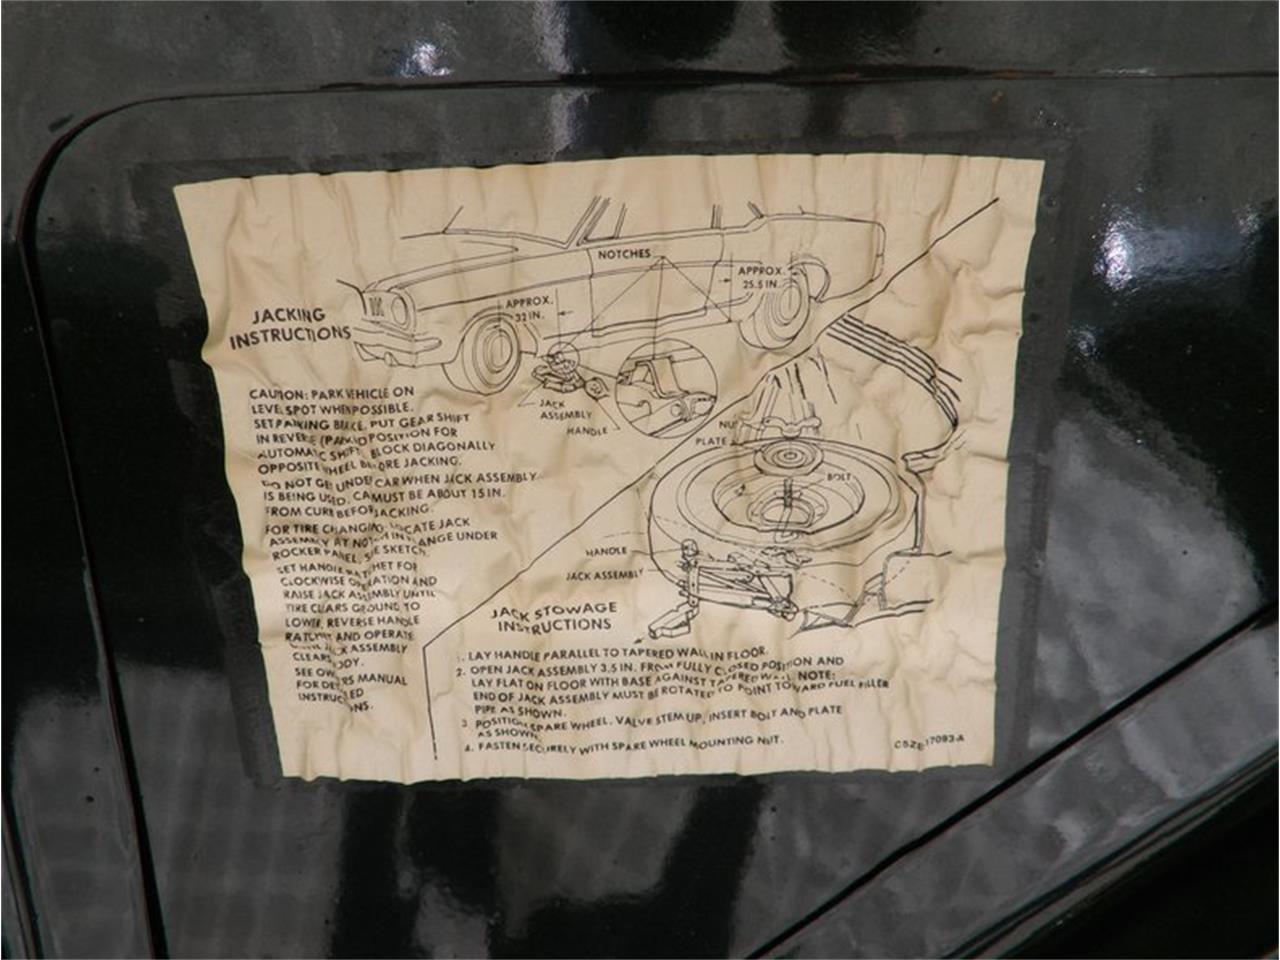 NOTCHES
APPROX.
25.5 IN.
APPROX.
32 IN.
JACKING
INSTRUCTIONS
JACK
ASSEMBLY
HANDLE
CAUTION: PARK VEHICLE ON
LEVEL SPOT WHEN POSSIBLE.
SET PARKING BRAKE, PUT GEAR SHIFT
IN REVERSE (PARK) POSITION FOR
AUTOMATIC SHIFT. BLOCK DIAGONALLY
OPPOSITE WHEEL BEFORE JACKING.
DO NOT GET UNDER CAR WHEN JACK ASSEMBLY
IS BEING USED. CAR MUST BE ABOUT 15 IN.
FROM CURB BEFORE JACKING.
FOR TIRE CHANGING: LOCATE JACK
ASSEMBLY AT NOTCH IN FLANGE UNDER
ROCKER PANEL. SEE SKETCH.
SET HANDLE RATCHET FOR
CLOCKWISE OPERATION AND
RAISE JACK ASSEMBLY UNTIL
TIRE CLEARS GROUND TO
LOWER, REVERSE HANDLE
RATCHET AND OPERATE
UNTIL JACK ASSEMBLY
CLEARS BODY.
SEE OWNERS MANUAL
FOR DETAILED
INSTRUCTIONS.
NUT
PLATE
BOLT
HANDLE
JACK ASSEMBLY
JACK STOWAGE
INSTRUCTIONS
1. LAY HANDLE PARALLEL TO TAPERED WALL IN FLOOR.
2. OPEN JACK ASSEMBLY 3.5 IN. FROM FULLY CLOSED POSITION AND
LAY FLAT ON FLOOR WITH BASE AGAINST TAPERED WALL. NOTE:
END OF JACK ASSEMBLY MUST BE ROTATED TO POINT TOWARD FUEL FILLER
PIPE AS SHOWN.
3. POSITION SPARE WHEEL, VALVE STEM UP, INSERT BOLT AND PLATE
AS SHOWN.
4. FASTEN SECURELY WITH SPARE WHEEL MOUNTING NUT.